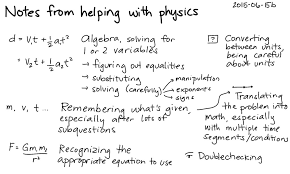 Notes from helping with physics
2015-06-15b
d = v₁t + ½a₁t²
= v₂t + ½a₂t²
Algebra, solving for
1 or 2 variables
→ figuring out equalities
→ substituting
→ solving (carefully)
→ manipulation
→ exponents
→ signs
? Converting
between units,
being careful
about units
m, v, t ...
Remembering what's given,
especially after lots of
subquestions
Translating
the problem into
math, especially
with multiple time
segments/conditions
F = Gm₁m₂
r²
Recognizing the
appropriate equation to use
Doublechecking